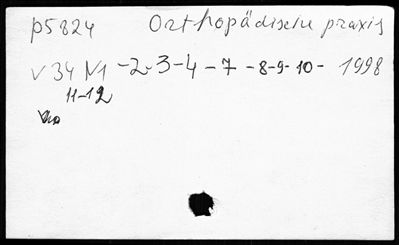 p5824 Orthopädische praxis
V 34 N1 -2-3-4-7-8-9-10- 1998
11-12